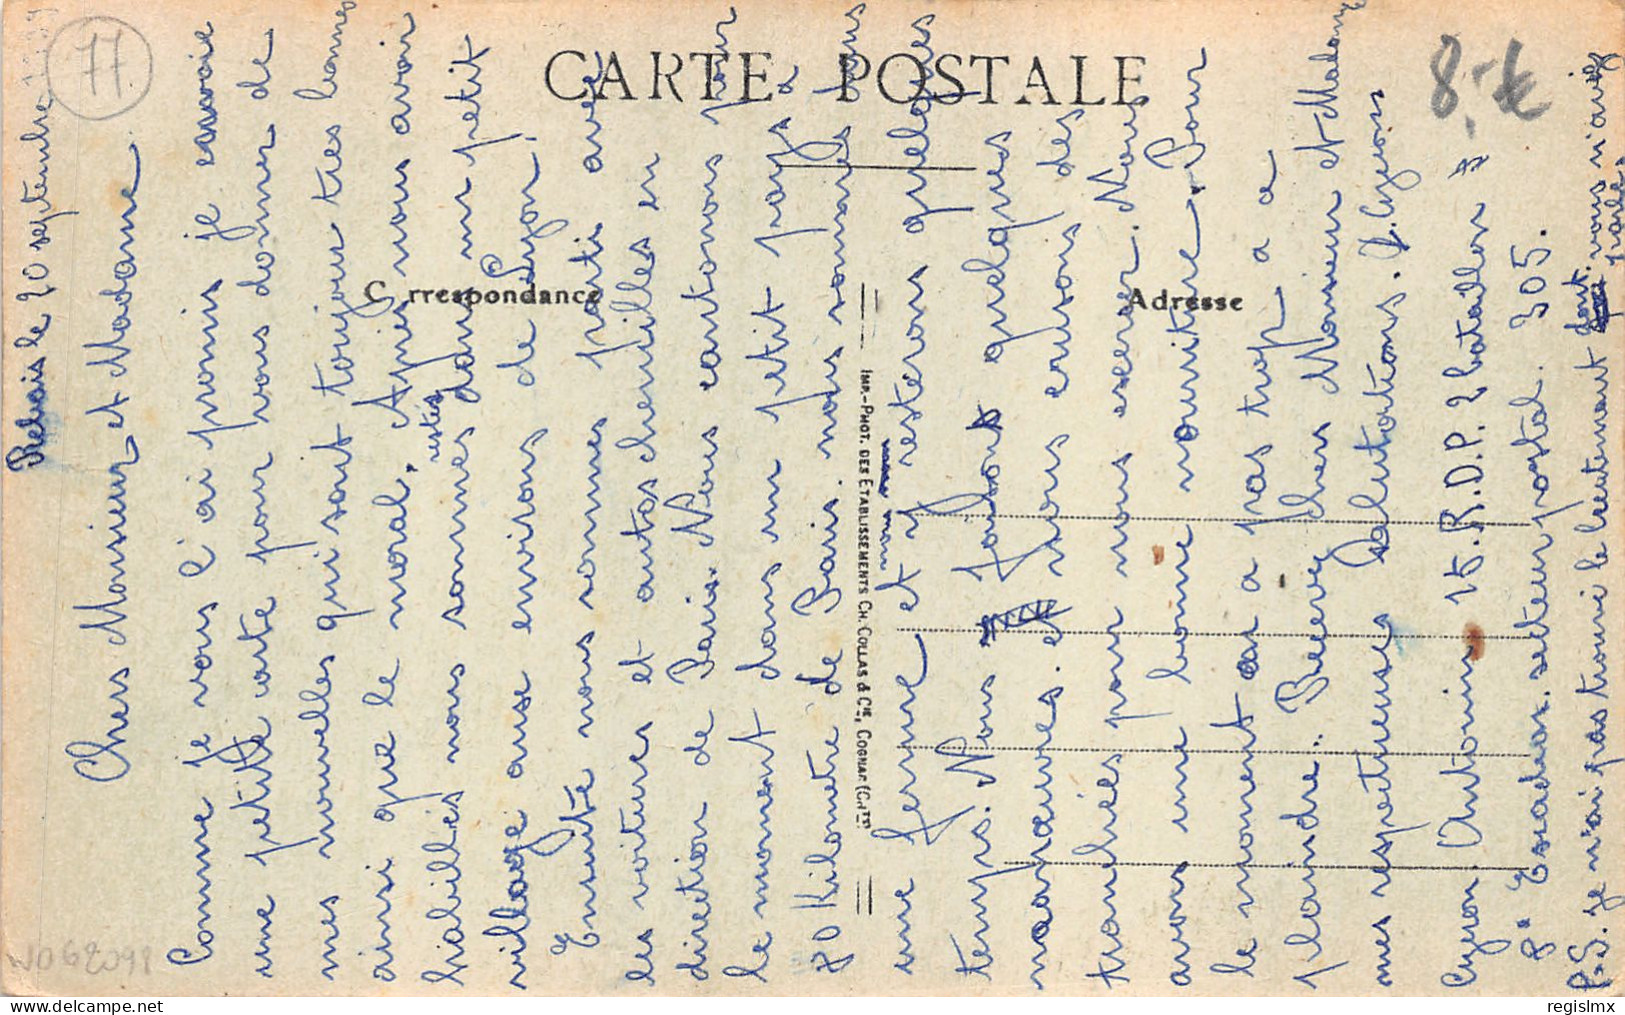 CARTE POSTALE
Correspondance
Adresse
IMP.-PHOT. DES ETABLISSEMENTS CH. COLLAS & CIE, COGNAC
77
8,-
Rebais le 20 septembre
Chers Monsieur et Madame.
Comme je vous l'ai promis je envoie
une petite carte pour vous donner de
mes nouvelles qui sont toujour tres bonnes
ainsi que le moral. Après nous avoir
habillés nous sommes restés dans un petit
village aux environs de Lyon.
Ensuite nous sommes parti avec
les voitures et autos chenilles en
direction de Paris. Nous cantonons pour
le moment dans un petit pays à
80 Kilometre de Paris. nous sommes dans
une ferme et y resterons quelques
temps. Nous faisons quelques
manœuvres. et nous creusons des
tranchées pour nous exercer. Nous
avons une bonne nourriture. Pour
le moment on a pas trop a a
plaindre. Recevez chers Monsieur et Madame
mes respectueuses salutations. A. Cyzeron
Cyzeron Antonin 15. R.D.P. 2 bataillon
8e Escadron. secteur postal. 305.
P.S. je n'ai pas trouvé le lieutenant dont vous m'aviez
parlé.
W068098
regislmx